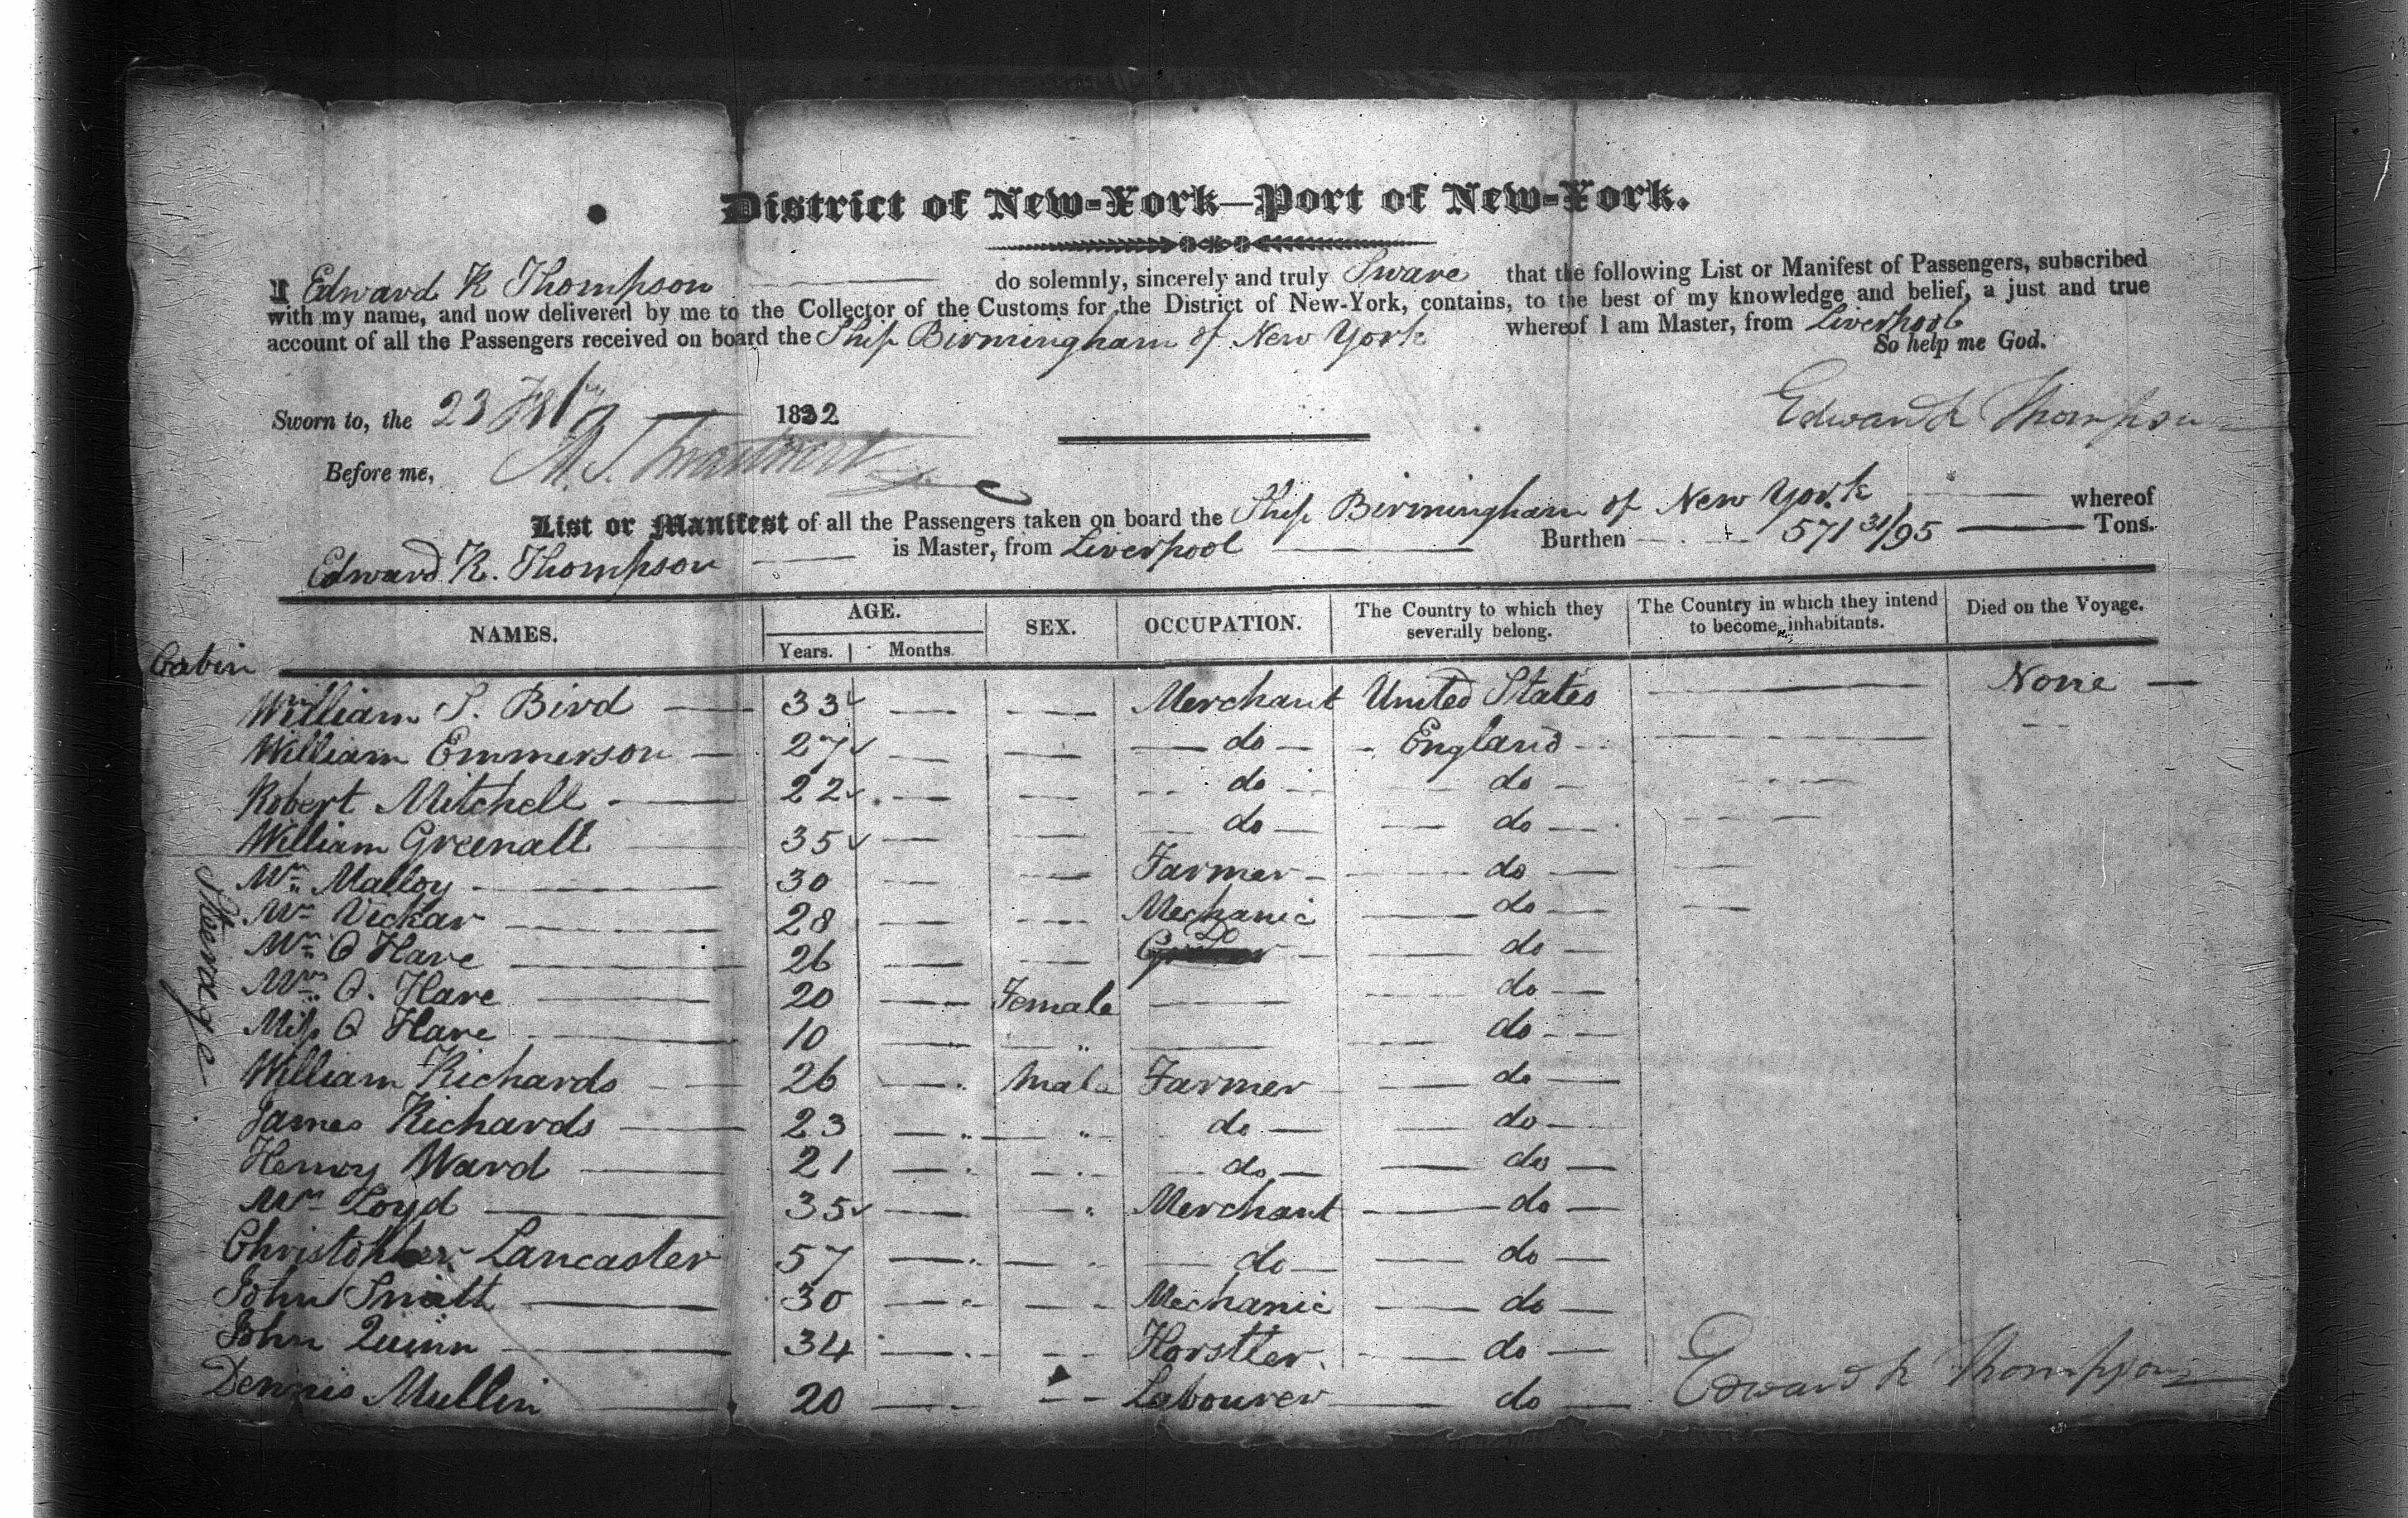 District of New-York—Port of New-York.
I Edward K Thompson do solemnly, sincerely and truly Sware that the following List or Manifest of Passengers, subscribed
with my name, and now delivered by me to the Collector of the Customs for the District of New-York, contains, to the best of my knowledge and belief, a just and true
account of all the Passengers received on board the Ship Birmingham of New York whereof I am Master, from Liverpool
So help me God.
Sworn to, the 23 Feby 1832
Edward K Thompson
Before me,
List or Manifest of all the Passengers taken on board the Ship Birmingham of New York whereof
Edward K. Thompson is Master, from Liverpool Burthen 571 31/95 Tons.
NAMES. AGE. SEX. OCCUPATION. The Country to which they severally belong. The Country in which they intend to become inhabitants. Died on the Voyage.
Years. Months
Cabin
William S. Bird 33 Merchant United States None
William Emmerson 27 do England
Robert Mitchell 22 do do
William Greenall 35 do do
Steerage
Wm Malloy 30 Farmer do
Wm Vickar 28 Mechanic do
Wm O Hare 26 Do do
Mrs O. Hare 20 Female do
Miss O Hare 10 " do
William Richards 26 Male Farmer do
James Richards 23 " do do
Henry Ward 21 do do
Mr Loyd 35 Merchant do
Christopher Lancaster 57 do do
John Smith 30 Mechanic do
John Quinn 34 Horstler do
Dennis Mullin 20 Labourer do
Edward K Thompson